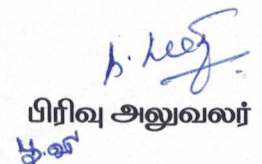 பிரிவு அலுவலர்
பூ.வி